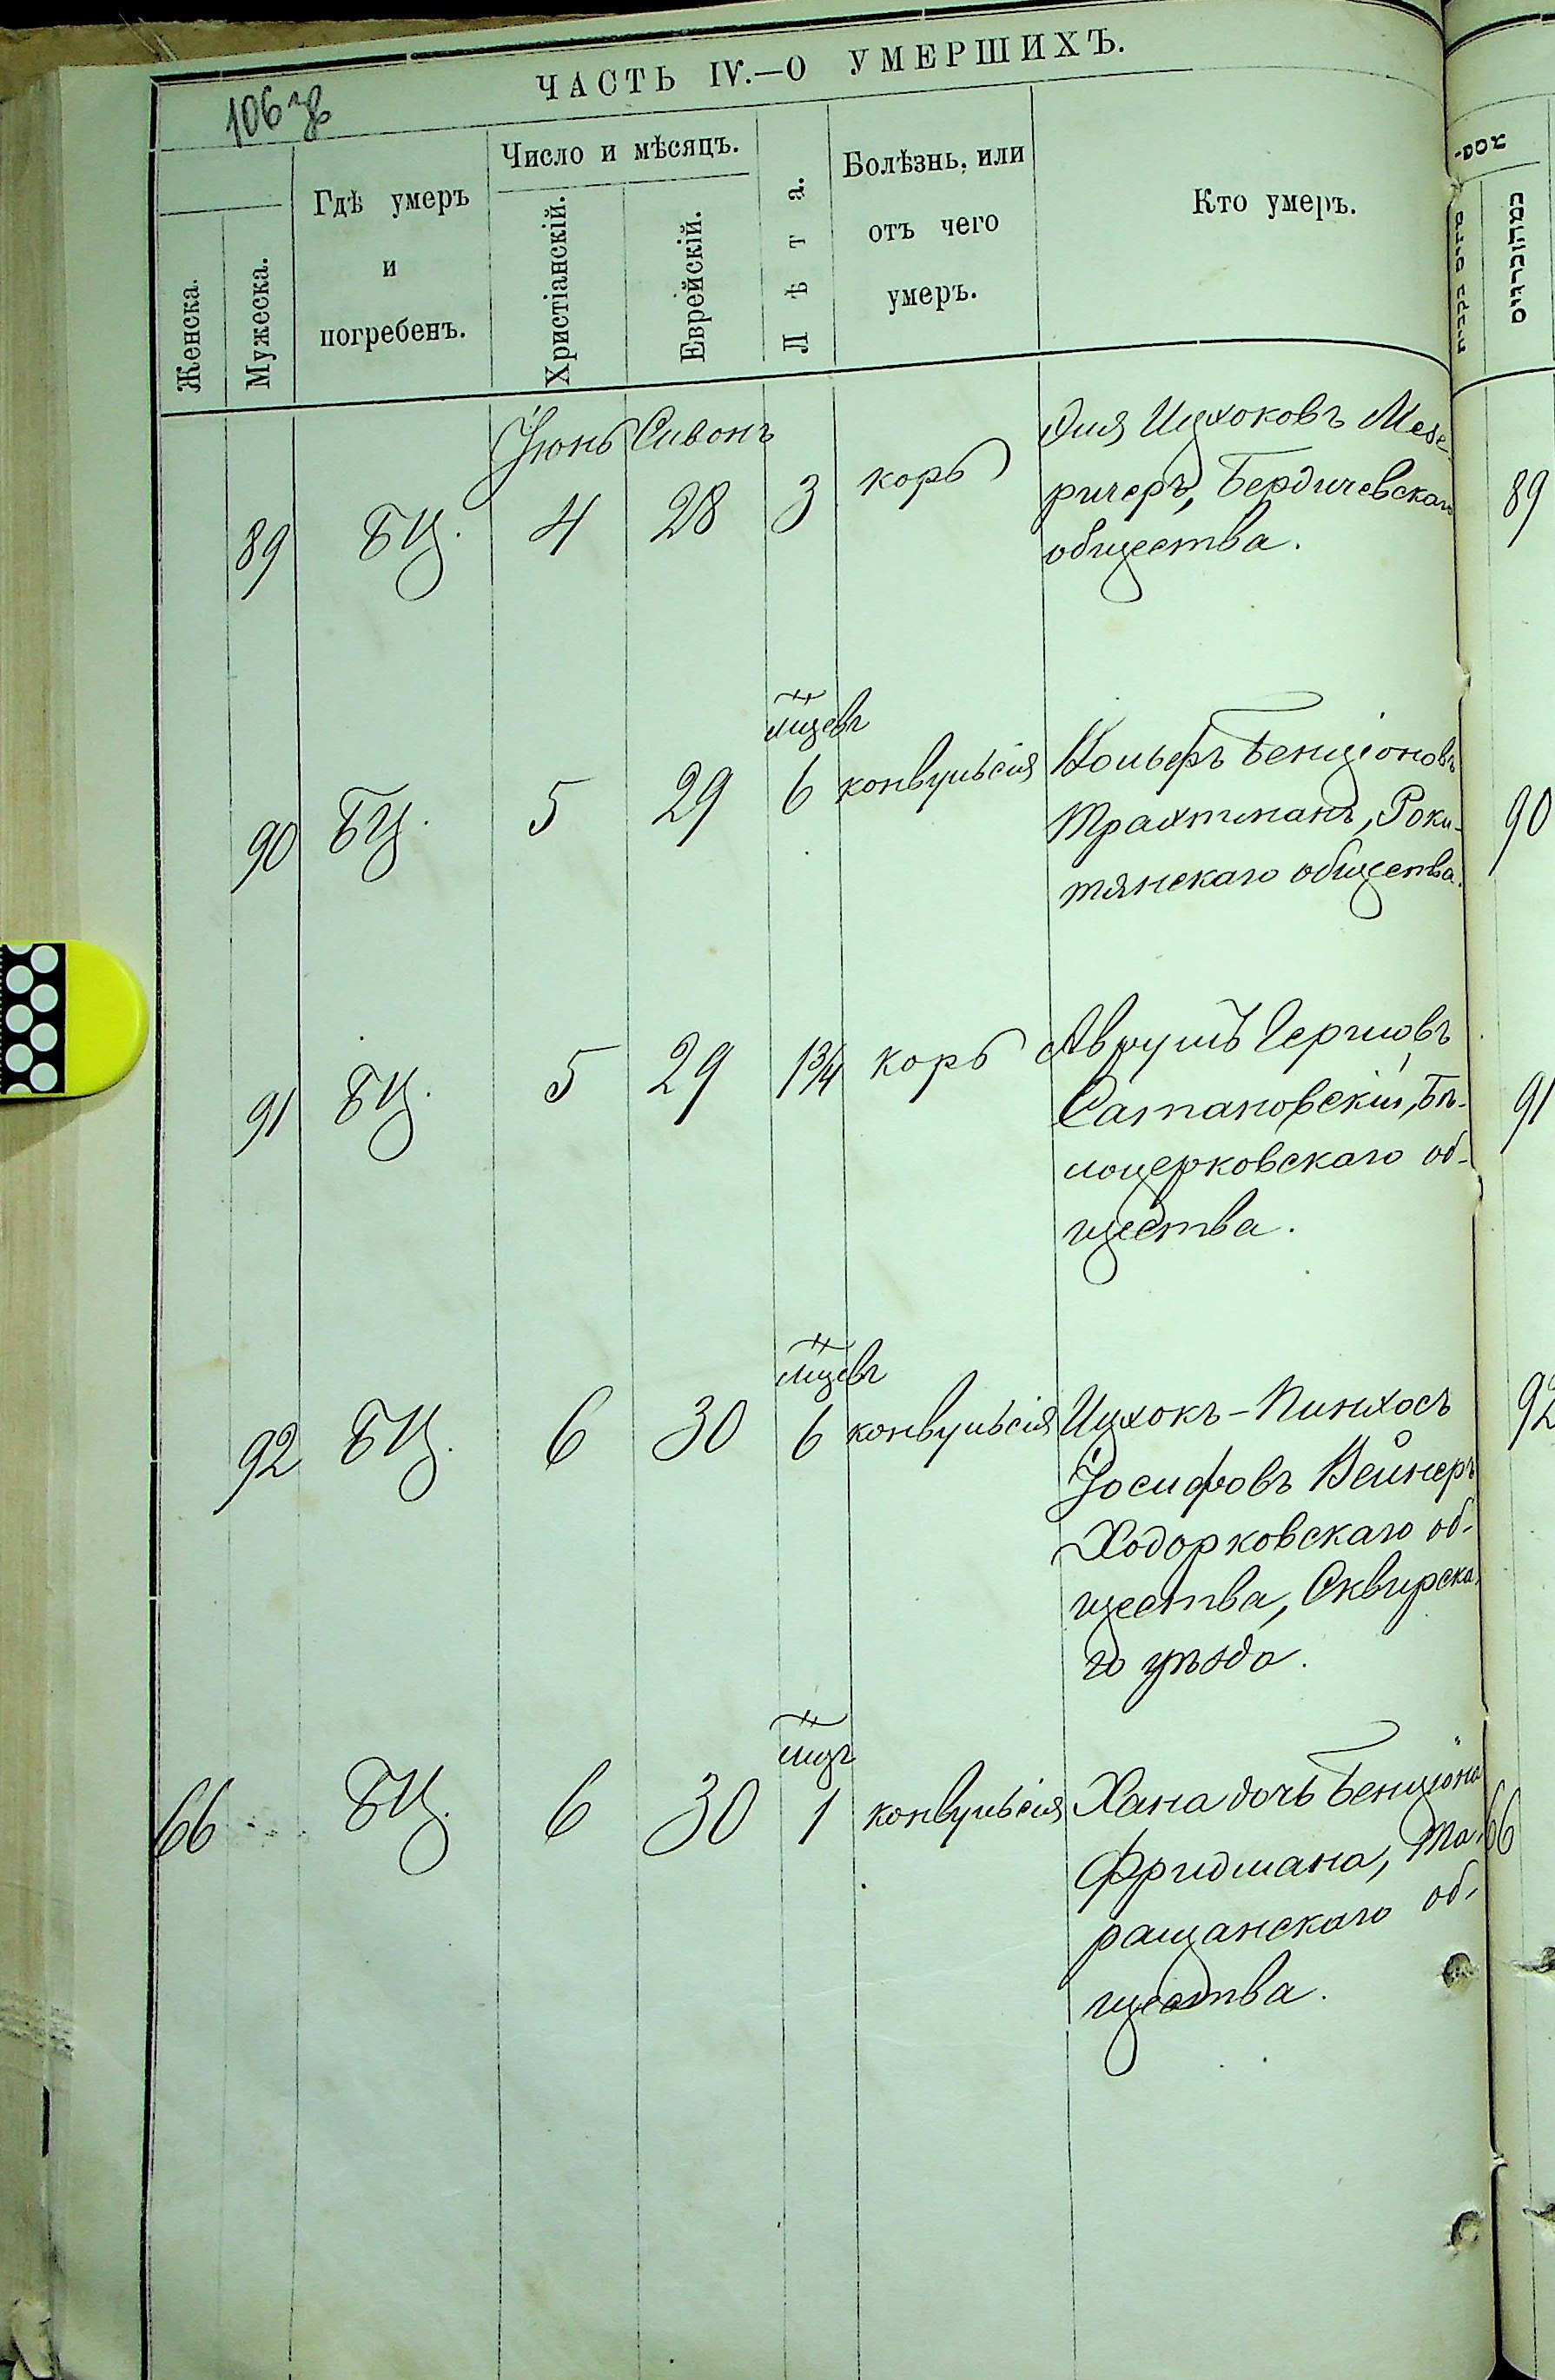 ЧАСТЬ IV.—О УМЕРШИХЪ.
106
Женска.
Мужеска.
Гдѣ умеръ
и
погребенъ.
Число и мѣсяцъ.
Христіанскій.
Еврейскій.
Лѣта.
Болѣзнь, или
отъ чего
умеръ.
Кто умеръ.
Іюнь Сивонъ
89 БЦ. 4 28 3 корь
Эля Ицхоковъ Мезе-
ричеръ, Бердичевскаго
общества.
89
мцевъ
90 БЦ. 5 29 6 конвульсія
Вольфъ Бенціоновъ
Трахтманъ, Роки-
тянскаго общества.
90
91 БЦ. 5 29 1¾ корь
Аврумъ Гершовъ
Сатановскій, Бѣ-
лоцерковскаго об-
щества.
91
мцевъ
92 БЦ. 6 30 6 конвульсія
Ицхокъ-Пинхосъ
Іосифовъ Вейнеръ
Ходорковскаго об-
щества, Сквирска-
го уѣзда.
92
мцъ
66 БЦ. 6 30 1 конвульсія
Хана дочь Бенціона
Фридмана, Та-
ращанскаго об-
щества.
66